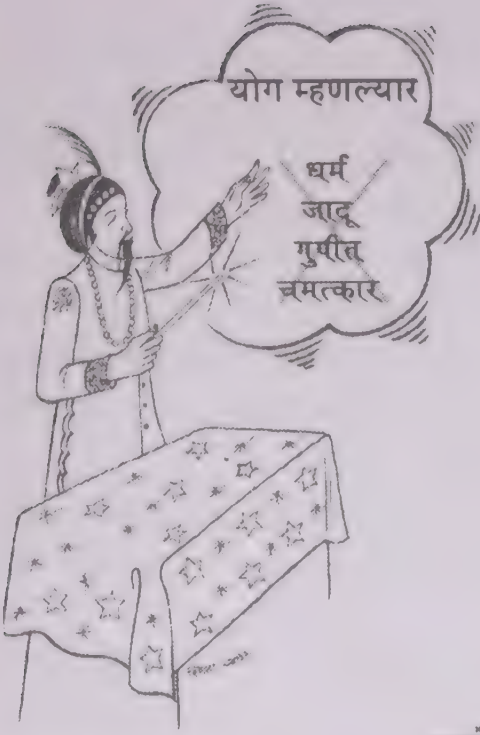 योग म्हणल्यार
धर्म
जादू
गुपीत
चमत्कार